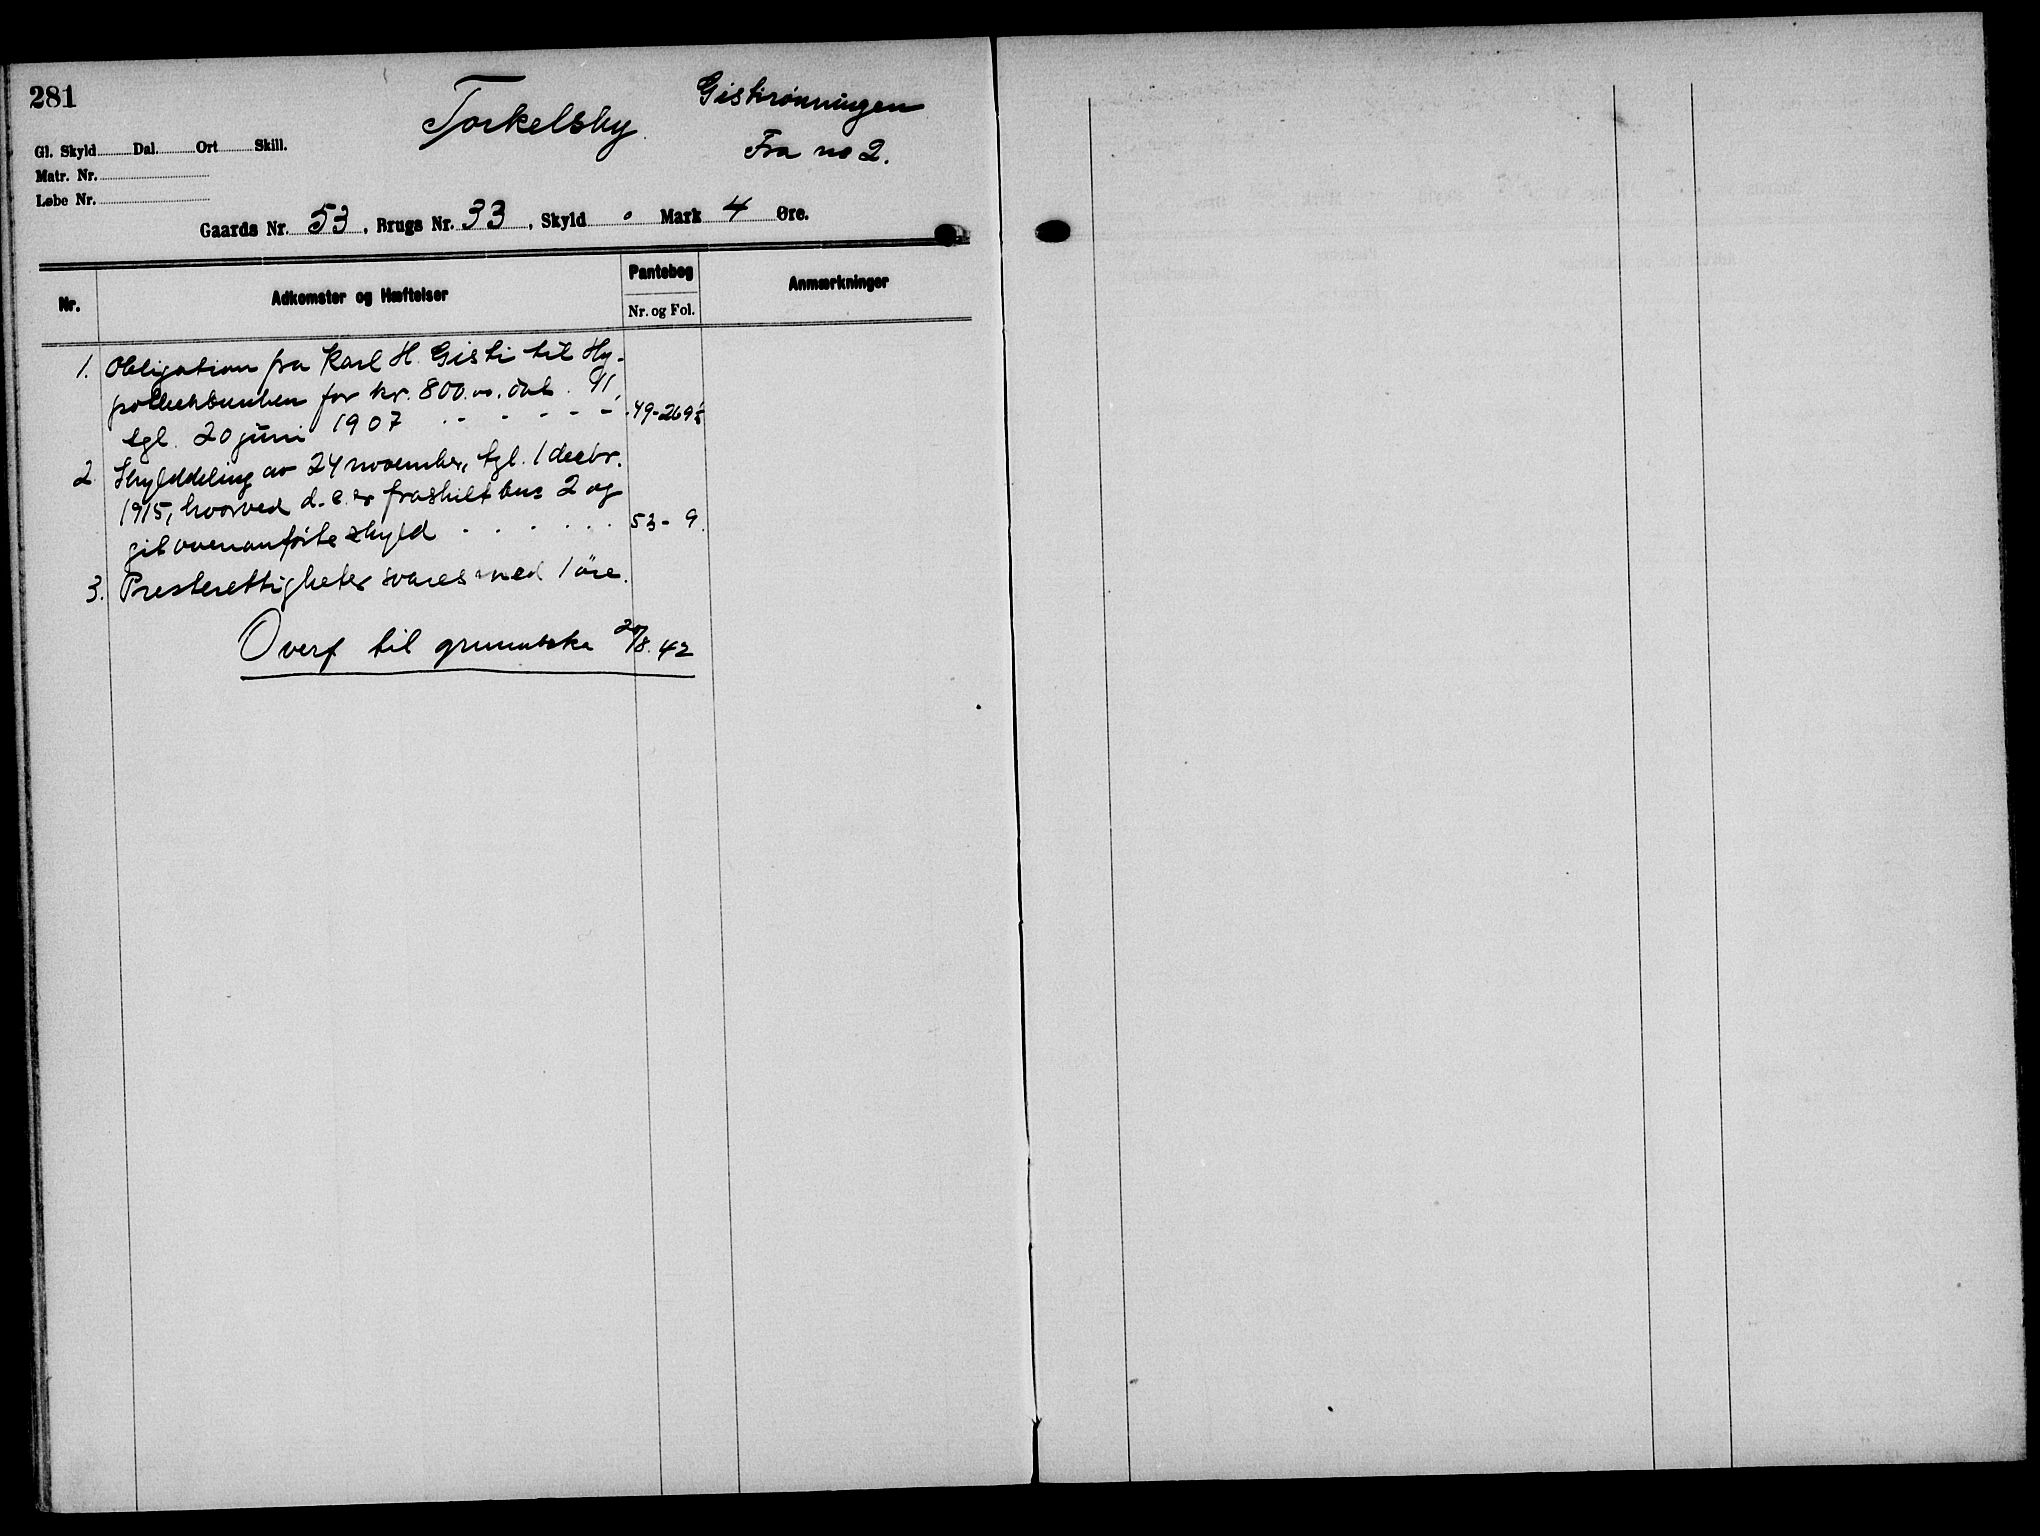 281
Torkelsby.
Gistirønningen
Fra no 2.
Gl. Skyld Dal. Ort Skill.
Matr. Nr.
Løbe Nr.
Gaards Nr. 53, Brugs Nr. 33, Skyld 0 Mark 4 Øre.
Nr. Adkomster og Hæftelser Pantebog Anmærkninger
Nr. og Fol.
1. Obligation fra Karl H. Gisti til Hy-
pothekbanken for kr. 800.00, dat.
tgl. 20 juni 1907 - - - - - 49-269
2 Skylddeling av 24 november, tgl. 1 decbr.
1915, hvorved d. e. er fraskilt bns 2 og
git ovenanførte skyld - - - - - 53 - 9.
3. Presterettigheter svares med 1 øre.
Overf til grunnboka 20/8.42